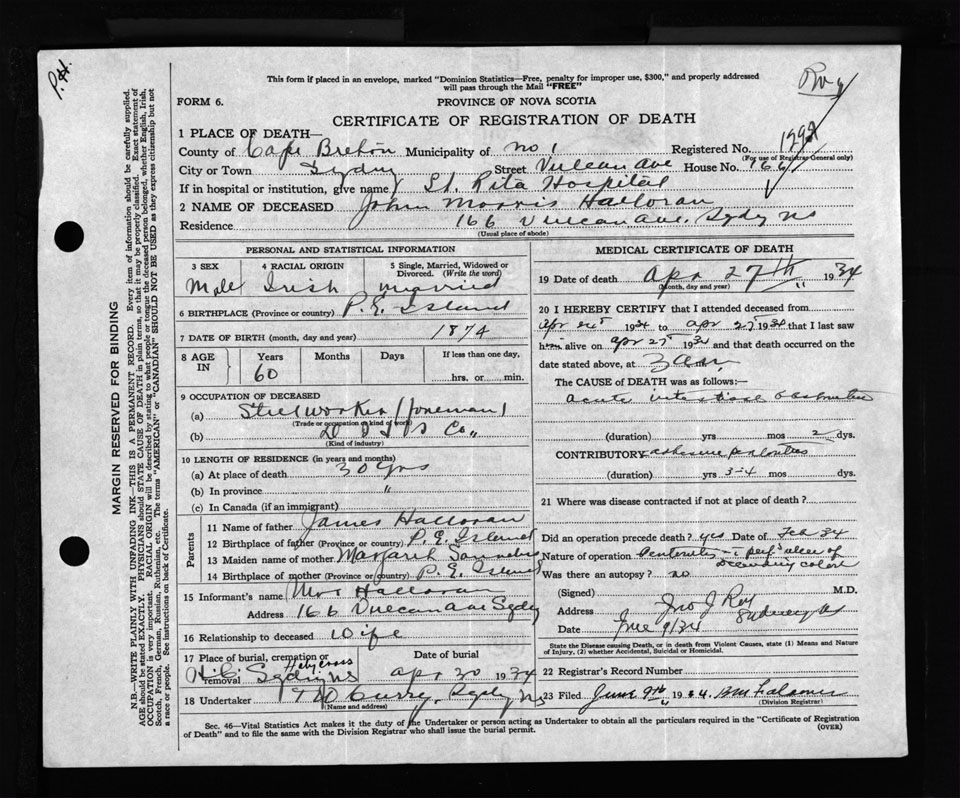 P.H.
This form if placed in an envelope, marked "Dominion Statistics—Free, penalty for improper use, $300," and properly addressed
will pass through the Mail "FREE"
FORM 6.
PROVINCE OF NOVA SCOTIA
CERTIFICATE OF REGISTRATION OF DEATH
1 PLACE OF DEATH—
County of Cape Breton Municipality of No 1 Registered No.
(For use of Registrar General only)
City or Town Sydney Street Vulcan Ave House No. 166
If in hospital or institution, give name St. Rita Hospital
2 NAME OF DECEASED John Morris Halloran
Residence 166 Vulcan Ave, Sydy NS
(Usual place of abode)
PERSONAL AND STATISTICAL INFORMATION
3 SEX Male
4 RACIAL ORIGIN Irish
5 Single, Married, Widowed or Divorced. (Write the word) married
6 BIRTHPLACE (Province or country) P.E. Island
7 DATE OF BIRTH (month, day and year) 1874
8 AGE IN Years 60 Months Days If less than one day, hrs. or min.
9 OCCUPATION OF DECEASED
(a) Steelworker
(Trade or occupation or kind of work)
(b) Co.,
(Kind of industry)
10 LENGTH OF RESIDENCE (in years and months)
(a) At place of death 30 yrs
(b) In province "
(c) In Canada (if an immigrant)
Parents
11 Name of father James Halloran
12 Birthplace of father (Province or country) P.E. Island
13 Maiden name of mother Margaret Saunders
14 Birthplace of mother (Province or country) P.E. Island
15 Informant's name Mrs Halloran
Address 166 Vulcan Ave Sydy
16 Relationship to deceased Wife
17 Place of burial, cremation or removal Holy Cross Sydy NS
Date of burial Apr 30 1934
18 Undertaker Curry, Sydy NS
(Name and address)
MEDICAL CERTIFICATE OF DEATH
19 Date of death Apr 27th 1934
(Month, day and year)
20 I HEREBY CERTIFY that I attended deceased from
Apr 1934 to Apr 27 1934 that I last saw
him alive on Apr 27 1934 and that death occurred on the
date stated above, at 3 am
The CAUSE OF DEATH was as follows:—
acute intestinal obstruction
(duration) yrs mos 2 dys.
CONTRIBUTORY adhesive peritonitis
(duration) yrs 3-4 mos dys.
21 Where was disease contracted if not at place of death?
Did an operation precede death? yes Date of Feb 34
Nature of operation ulcer of
Was there an autopsy? no
(Signed) Jno J Roy M.D.
Address Sydney NS
Date June 9/34
State the Disease causing Death, or in death from Violent Causes, state (1) Means and Nature
of Injury, (2) whether Accidental, Suicidal or Homicidal.
22 Registrar's Record Number
23 Filed June 9th 1934.
(Division Registrar)
Sec. 46—Vital Statistics Act makes it the duty of the Undertaker or person acting as Undertaker to obtain all the particulars required in the "Certificate of Registration
of Death" and to file the same with the Division Registrar who shall issue the burial permit.
(OVER)
MARGIN RESERVED FOR BINDING
N.B.—WRITE PLAINLY WITH UNFADING INK—THIS IS A PERMANENT RECORD. Every item of information should be carefully supplied.
AGE should be stated EXACTLY. PHYSICIANS should STATE CAUSE OF DEATH in plain terms, so that it may be properly classified. Exact statement of
OCCUPATION is very important. RACIAL ORIGIN will be described by stating to what people or tongue the deceased person belonged, whether English, Irish,
Scotch, French, German, Russian, Ruthenian, etc. The terms "AMERICAN" or "CANADIAN" SHOULD NOT BE USED as they express citizenship but not
a race or people. See instructions on back of Certificate.